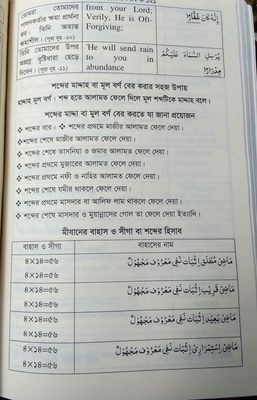 তোমরা তোমাদের
পালনকর্তার ক্ষমা প্রার্থনা
কর। তিনি অত্যন্ত
ক্ষমাশীল। (সূরা নূহ -১০)
from your Lord;
Verily, He is Oft-
Forgiving;
إِنَّهُ كَانَ غَفَّارًا
তিনি তোমাদের উপর
অজস্র বৃষ্টিধারা ছেড়ে
দিবেন। (সূরা নূহ -১১)
'He will send rain
to you in
abundance
يُرْسِلِ السَّمَاءَ عَلَيْكُمْ
مِدْرَارًا
শব্দের মাদ্দাহ বা মূল বর্ণ বের করার সহজ উপায়
মাদ্দাহ মূল বর্ণ। শব্দ হতে আলামত ফেলে দিলে মূল শব্দটিকে মাদ্দাহ বলে।
শব্দের মাদ্দাহ বা মূল বর্ণ বের করতে যা জানা প্রয়োজন
❖ শব্দের বাব। ❖ শব্দের প্রথমে মাজীর আলামত ফেলে দেয়া।
❖ শব্দের শেষে মাজীর আলামত ফেলে দেয়া।
❖ শব্দের শেষে তাসনিয়া ও জমার আলামত ফেলে দেয়া।
❖ শব্দের প্রথমে মুজারের আলামত ফেলে দেয়া।
❖ শব্দের প্রথমে নফী ও নাহির আলামত ফেলে দেয়া।
❖ শব্দের শেষে যমীর থাকলে ফেলে দেয়া।
❖ শব্দের প্রথমে মাসদার বা আলিফ লাম থাকলে ফেলে দেয়া।
❖ শব্দের শেষে মাসদার ও মুয়ান্নাসের গোল তা ফেলে দেয়া ইত্যাদি।
মীযানের বাহাস ও সীগা বা শব্দের হিসাব
বাহাস ও সীগা বাহাসের নাম
৪×১৪=৫৬ مَاضِىْ مُطْلَقْ اِثْبَات نَفِى مَعْرُوْف مَجْهُوْلْ
৪×১৪=৫৬
৪×১৪=৫৬ مَاضِىْ قَرِيْب اِثْبَات نَفِى مَعْرُوْف مَجْهُوْلْ
৪×১৪=৫৬
৪×১৪=৫৬ مَاضِىْ بَعِيْد اِثْبَات نَفِى مَعْرُوْف مَجْهُوْلْ
৪×১৪=৫৬
৪×১৪=৫৬ مَاضِىْ اِسْتِمْرَارِىْ اِثْبَات نَفِى مَعْرُوْف مَجْهُوْلْ
৪×১৪=৫৬